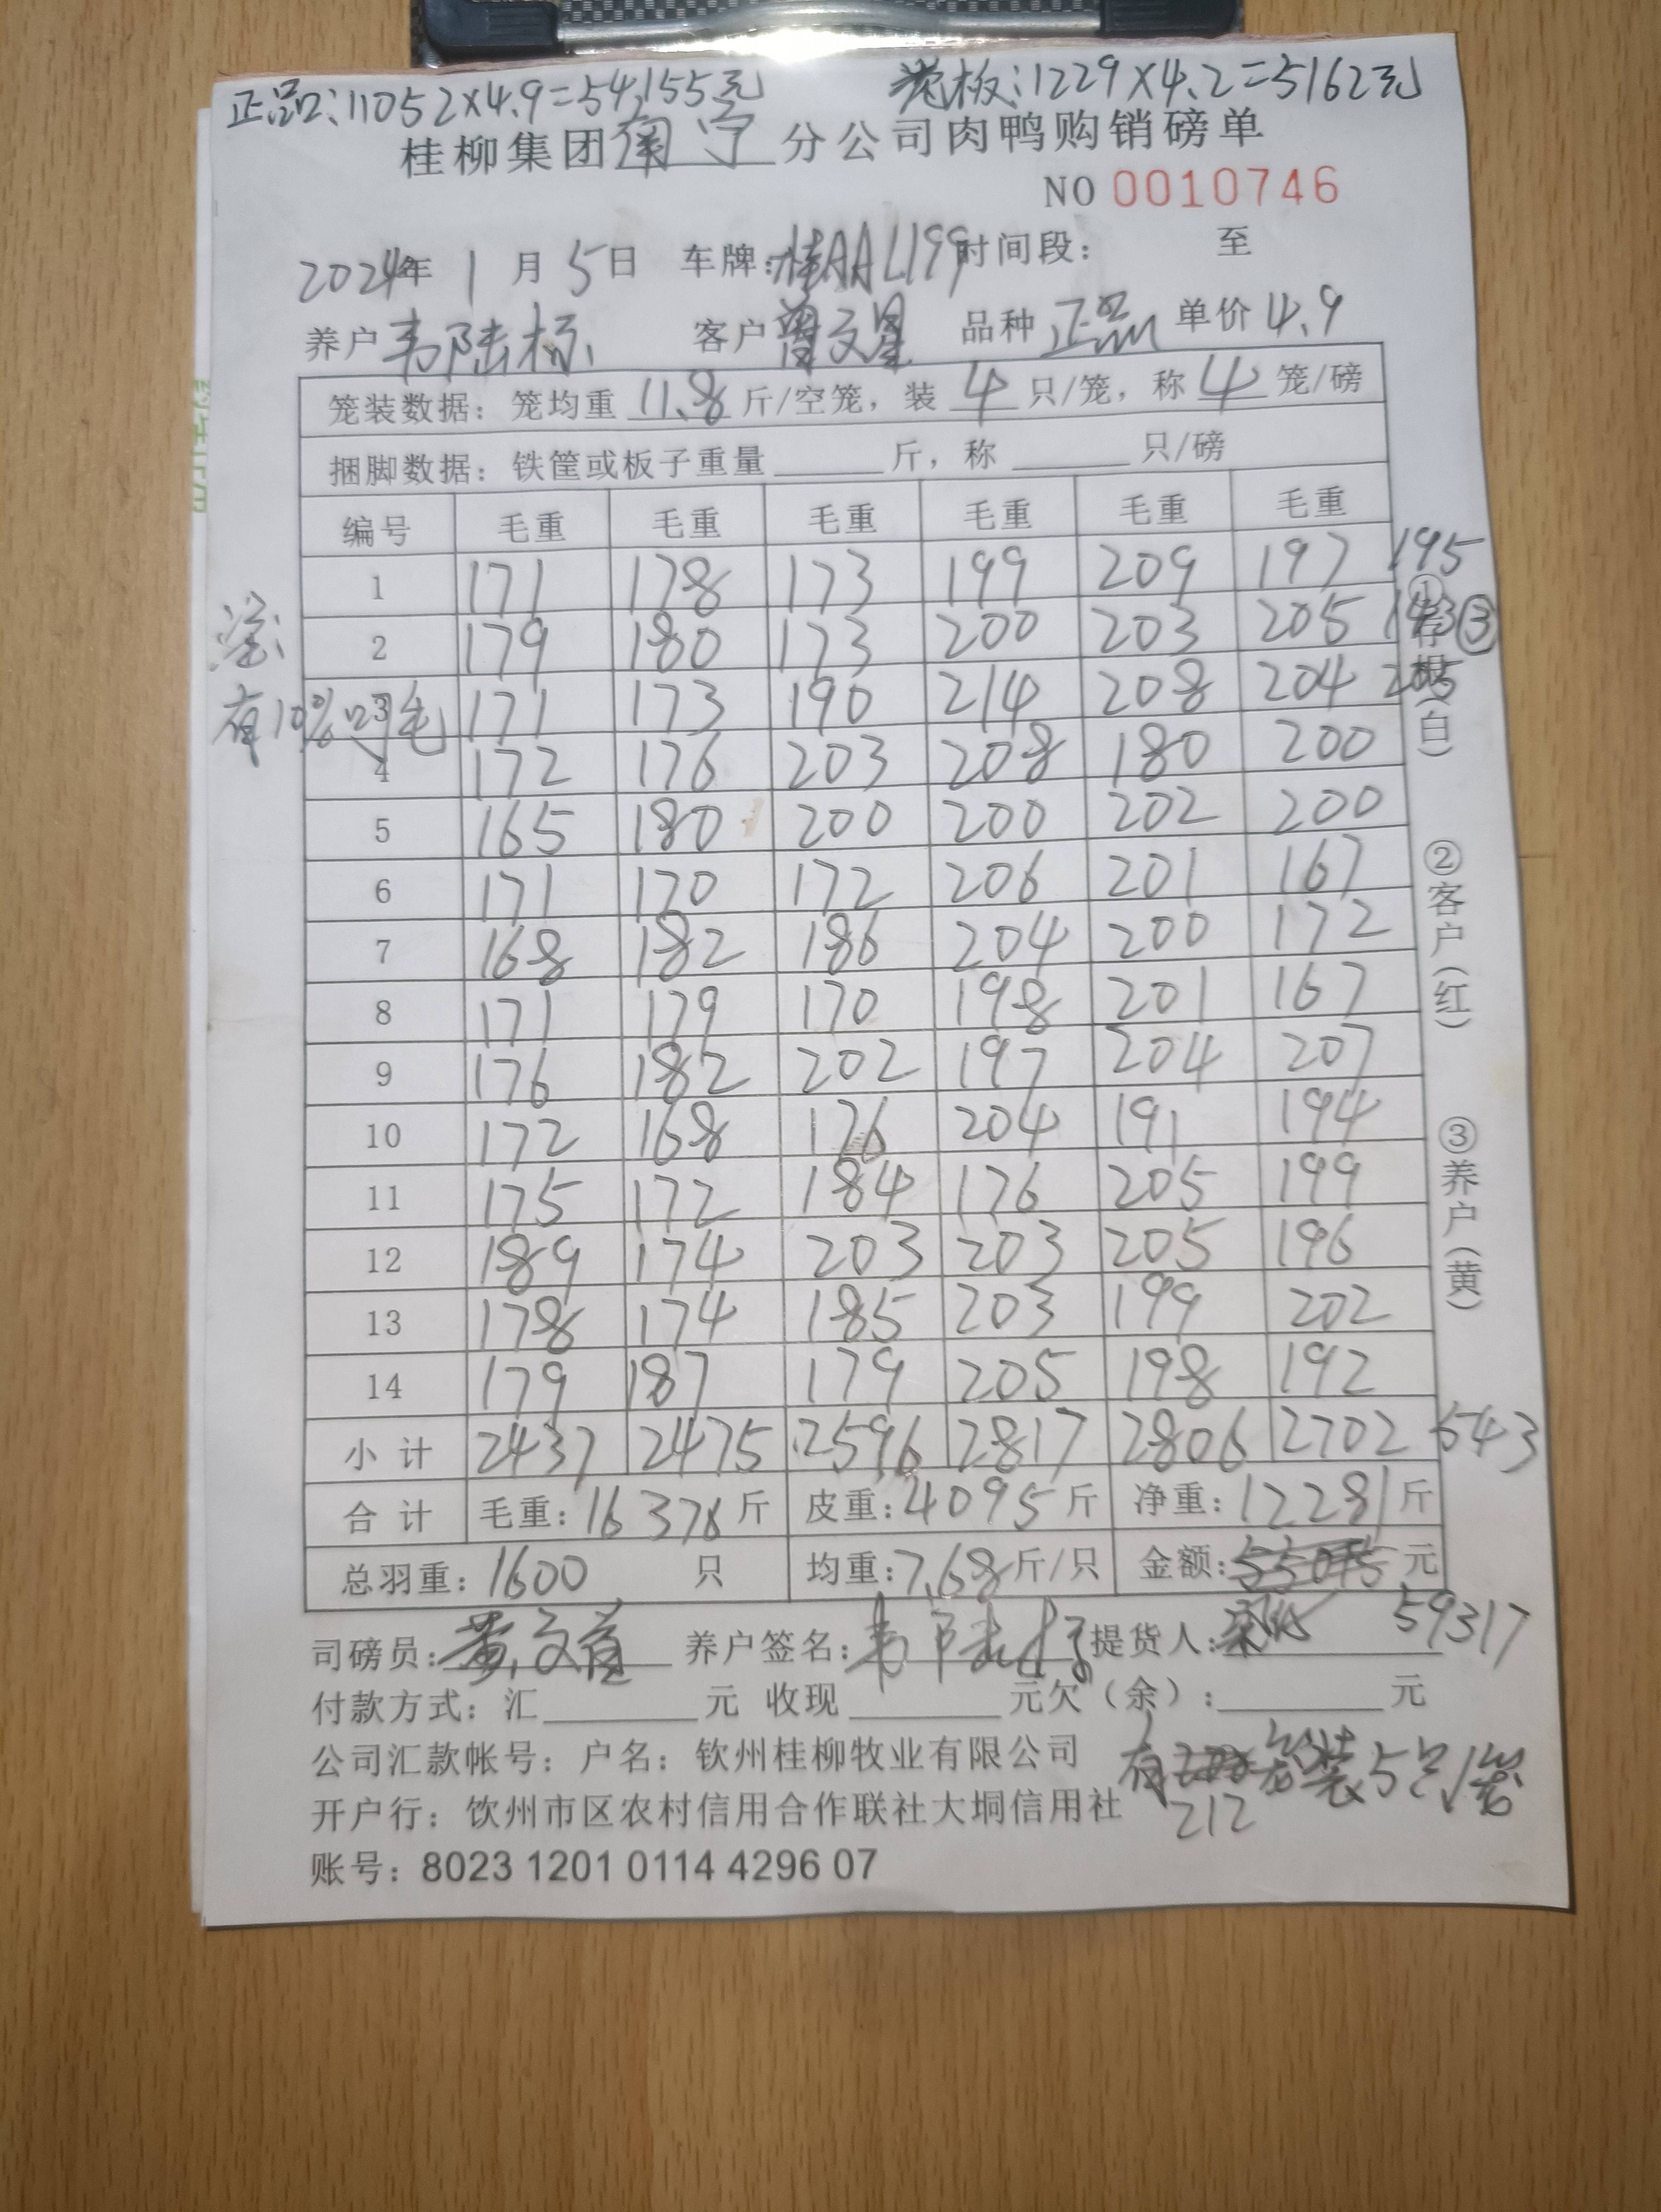 正品:11052×4.9=54155元 老板:1229×4.2=5162元
桂柳集团南宁分公司肉鸭购销磅单
NO 0010746
2024年 1 月 5 日 车牌:桂AAL199 时间段: 至
养户 韦陆标 客户 曾文星 品种 正品 单价 4.9
笼装数据: 笼均重 11.8 斤/空笼, 装 4 只/笼, 称 4 笼/磅
捆脚数据: 铁筐或板子重量 斤, 称 只/磅
编号 毛重 毛重 毛重 毛重 毛重 毛重
1 171 178 173 199 209 197 195
2 179 180 173 200 203 205 143 ③
3 171 173 190 214 208 204 205
有10%叼毛
4 172 176 203 208 180 200
5 165 180 200 200 202 200
6 171 170 172 206 201 167
7 168 182 186 204 200 172
8 171 179 170 198 201 167
9 176 182 202 197 204 207
10 172 168 176 204 191 194
11 175 172 184 176 205 199
12 189 174 203 203 205 196
13 178 174 185 203 199 202
14 179 187 179 205 198 192
小计 2437 2475 2596 2817 2806 2702 543
合计 毛重: 16376 斤 皮重: 4095 斤 净重: 12281 斤
总羽重: 1600 只 均重: 7.68 斤/只 金额: 元
59317
①存根(白)
②客户(红)
③养户(黄)
司磅员: 养户签名: 韦陆标 提货人:
付款方式: 汇 元 收现 元欠(余): 元
公司汇款帐号: 户名: 钦州桂柳牧业有限公司
有212笼装5只/笼
开户行: 饮州市区农村信用合作联社大垌信用社
账号: 8023 1201 0114 4296 07